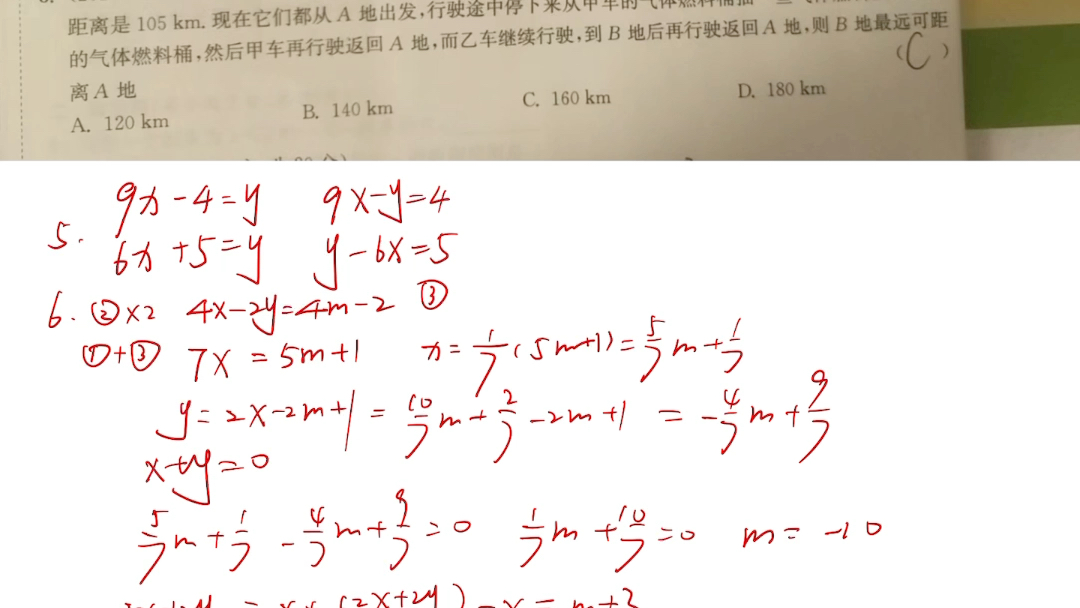 距离是 105 km. 现在它们都从 A 地出发,行驶途中停下来从甲车的气体燃料桶
的气体燃料桶,然后甲车再行驶返回 A 地,而乙车继续行驶,到 B 地后再行驶返回 A 地,则 B 地最远可距
离 A 地 (C)
A. 120 km B. 140 km C. 160 km D. 180 km
5. 9x-4=y 9x-y=4
6x+5=y y-6x=5
6. ②×2 4x-2y=4m-2 ③
①+③ 7x=5m+1 x=1/7(5m+1)=5/7m+1/7
y=2x-2m+1=10/7m+2/7-2m+1=-4/7m+9/7
x+y=0
5/7m+1/7-4/7m+9/7=0 1/7m+10/7=0 m=-10
(2x+2y)-x=m+3